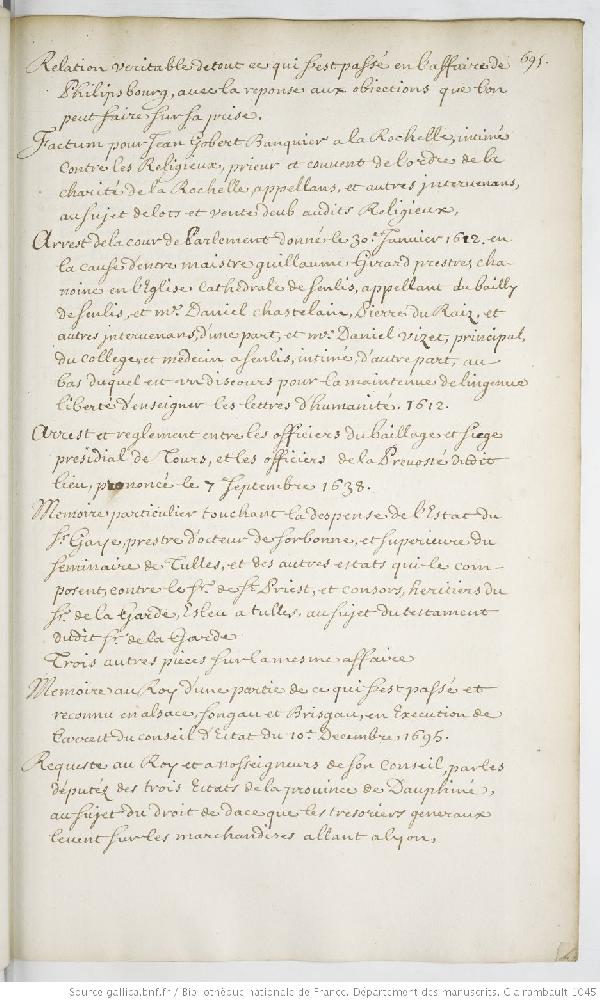 695.
Relation veritable de tout ce qui s'est passé en l'affaire de
Philipsbourg, avec la reponse aux objections que l'on
peut faire sur sa prise.
Factum pour Jean Gobert Banquier a la Rochelle, intimé
contre les Religieux, prieur et couvent de l'ordre de la
charité de la Rochelle, appellans, et autres intervenans,
au sujet de lots et vente deub audits Religieux.
Arrest de la cour de Parlement donné le 30e. Janvier 1612. en
la cause d'entre maistre guillaume Girard prestre, cha-
noine en l'Eglise Cathedrale de senlis, appellant du bailly
de senlis, et mr. Daniel chastelain, Pierre du Raiz, et
autres intervenans, d'une part, et mr. Daniel Vizet, principal
du college, et medecin a senlis, intimé, d'autre part, au
bas duquel est un discours pour la maintenue de l'ingenue
liberté d'enseigner les lettres d'humanité. 1612.
Arrest et reglement entre les officiers du baillage et siege
presidial de Tours, et les officiers de la Prevosté dudit
lieu, prononcé le 7 septembre 1638.
Memoire particulier touchant la despense de l'Estat du
sr. Gaye, prestre docteur de sorbonne, et superieure du
seminaire de Tulles, et des autres estats qui le com-
posent, contre le sr. de st. Priest, et consors, heritiers du
sr. de la Garde, Esleu a tulles, au sujet du testament
dudit sr. de la Garde
Trois autres pieces sur la mesme affaire
Memoire au Roy d'une partie de ce qui s'est passé et
reconnu en alsace, songau et Brisgau, en Execution de
l'arrest du conseil d'Estat du 10e. Decembre, 1695.
Requeste au Roy et a nosseigneurs de son Conseil, par les
députéz des trois Estats de la province de Dauphiné,
au sujet du droit de dace que les tresoriers generaux
levent sur les marchandises allant a lyon.
Source gallica.bnf.fr / Bibliothèque nationale de France. Département des manuscrits. Clairambault 1045